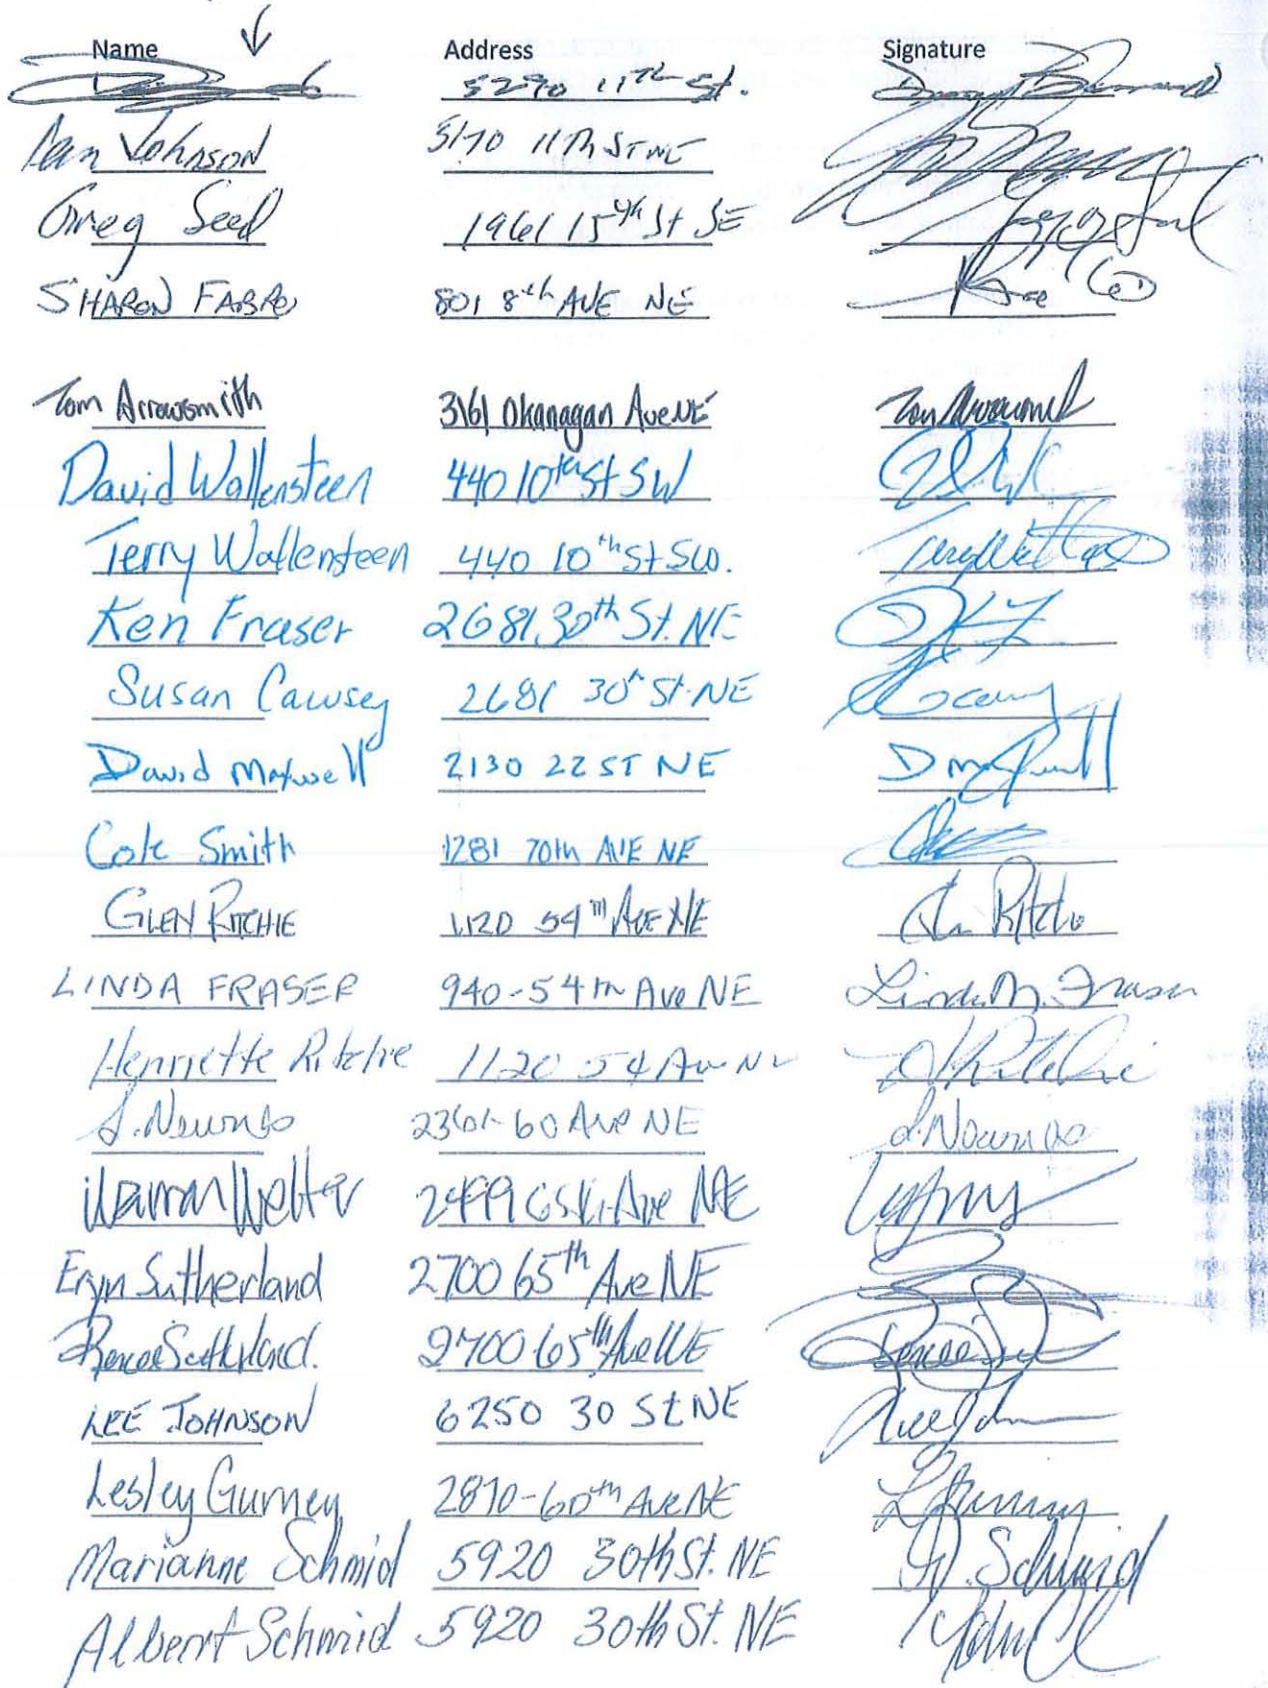 Name Address Signature
5290 11th St.
Dan Johnson 5170 11Th ST NE
Greg Seed 1961 15th St SE
SHARON FABRO 801 8th AVE NE
Tom Arrowsmith 3161 Okanagan Ave NE Tom Arrowsmith
David Wallensteen 440 10th St SW
Terry Wallensteen 440 10th St SW.
Ken Fraser 2681 30th St. NE
Susan Cawsey 2681 30th St. NE
David Maxwell 2130 22 ST NE
Cole Smith 1281 70th AVE NE
GLEN RITCHIE 1120 54TH AVE NE Ritchie
LINDA FRASER 940-54th Ave NE Linda M. Fraser
Henriette Ritchie 1120 54 Ave NE Ritchie
2361-60 Ave NE
Warran Welter Ave NE
Eryn Sutherland 2700 65th Ave NE
Renee Sutherland. 2700 65th Ave NE Renee
LEE JOHNSON 6250 30 St NE
Lesley Gurney 2870-60th Ave NE L Gurney
Marianne Schmid 5920 30th St. NE M. Schmid
Albert Schmid 5920 30th St. NE